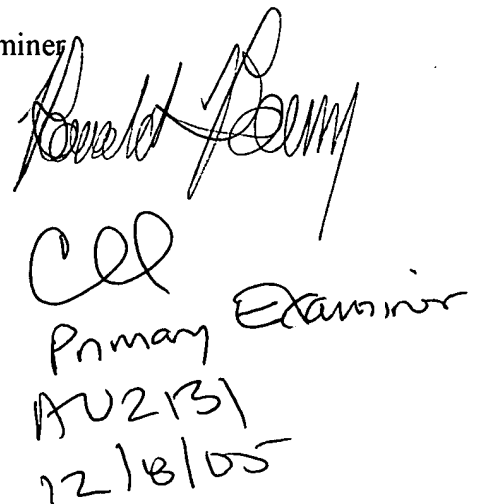 miner
Ronald Baum
Primary Examiner
AU2131
12/8/05